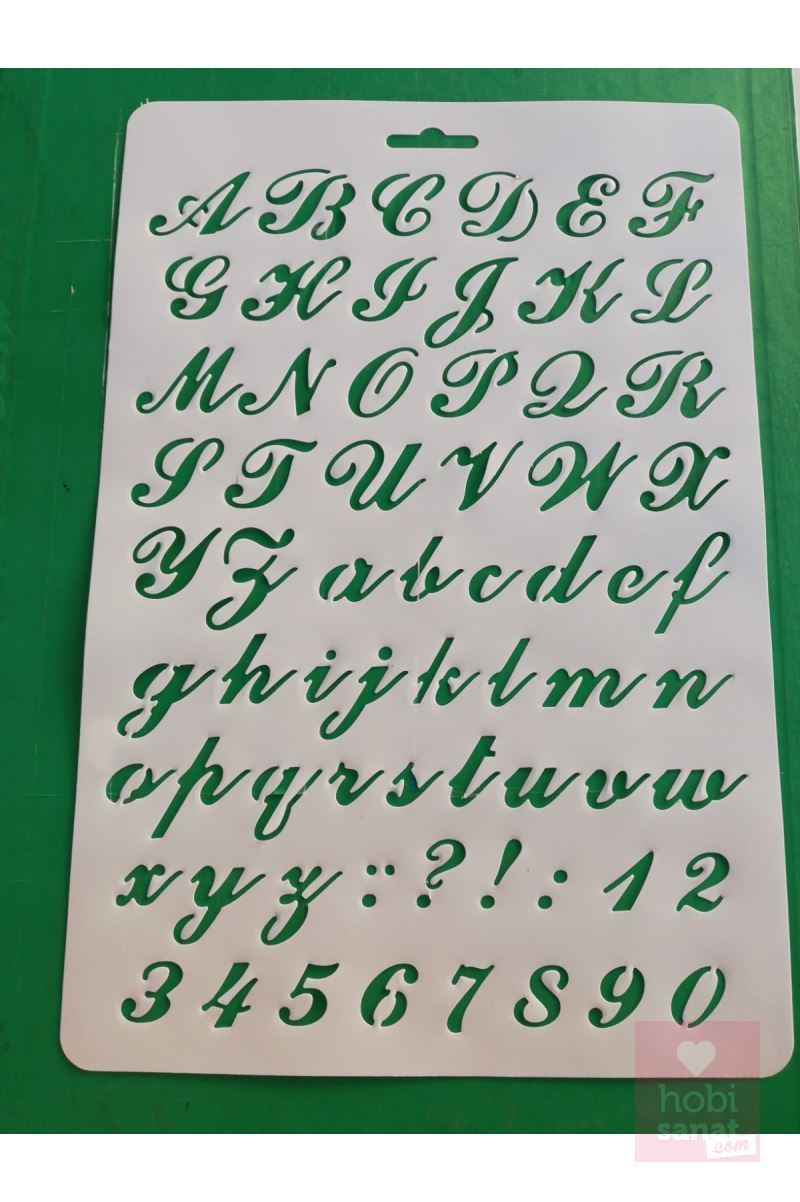 A B C D E F
G H I J K L
M N O P Q R
S T U V W X
Y Z a b c d e f
g h i j k l m n
o p q r s t u v w
x y z : ¨ ? ! : 1 2
3 4 5 6 7 8 9 0
hobi
sanat
.com